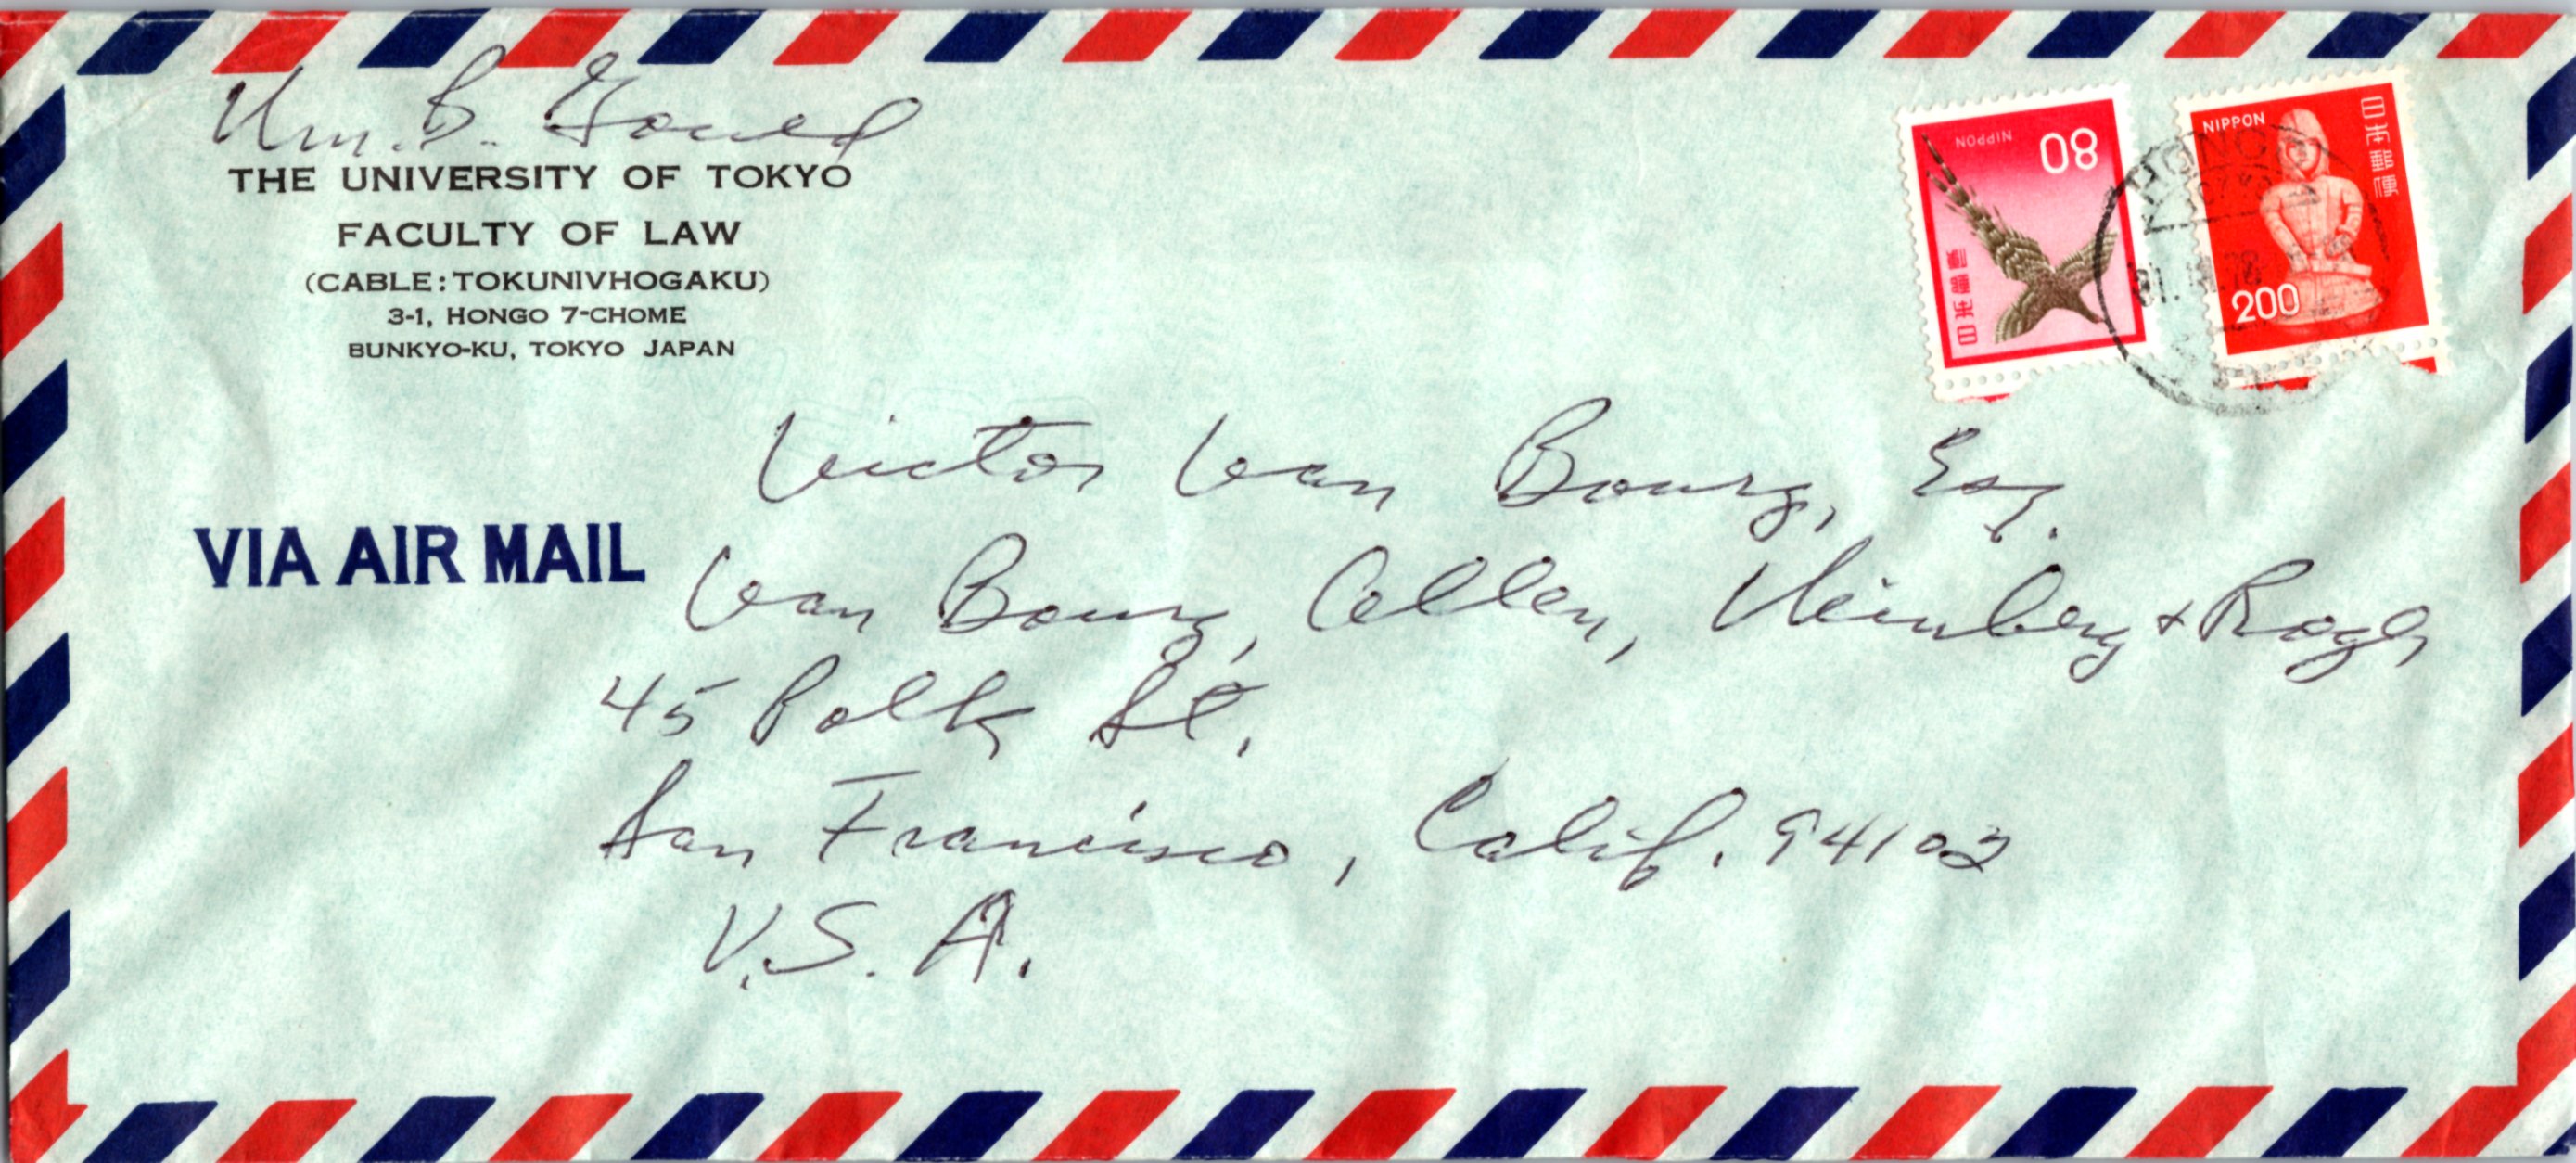 Wm. B. Gould
THE UNIVERSITY OF TOKYO
FACULTY OF LAW
(CABLE: TOKUNIVHOGAKU)
3-1, HONGO 7-CHOME
BUNKYO-KU, TOKYO JAPAN
NIPPON
80
日本郵便
NIPPON
日本郵便
200
HONGO
VIA AIR MAIL
Victor Van Bourg, Esq.
Van Bourg, Allen, Weinberg & Roger
45 Polk St.
San Francisco, Calif. 94102
U.S.A.